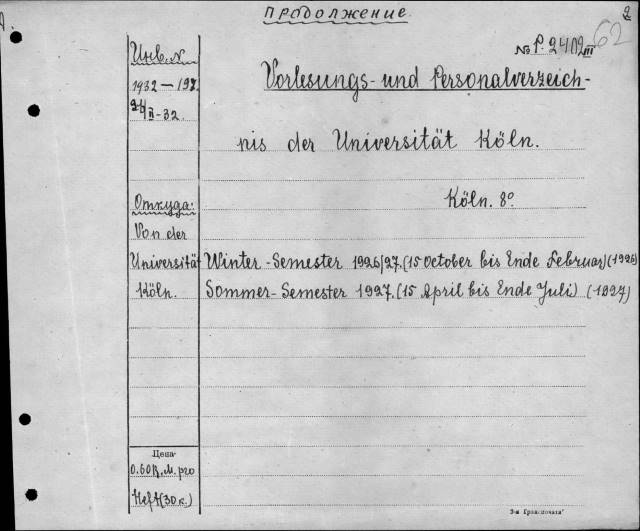 Продолжение
2
№ P. 2402 III
62
Инв. №
1932 — 192.
24/II - 32.
Vorlesungs- und Personalverzeich-
nis der Universität Köln.
Откуда:
Köln. 8°
Von der
Universität Winter-Semester 1926/27. (15 October bis Ende Februar) (1926)
Köln. Sommer-Semester 1927. (15 April bis Ende Juli) (1927)
Цена
0.60 R. M. pro
Heft (30 к.)